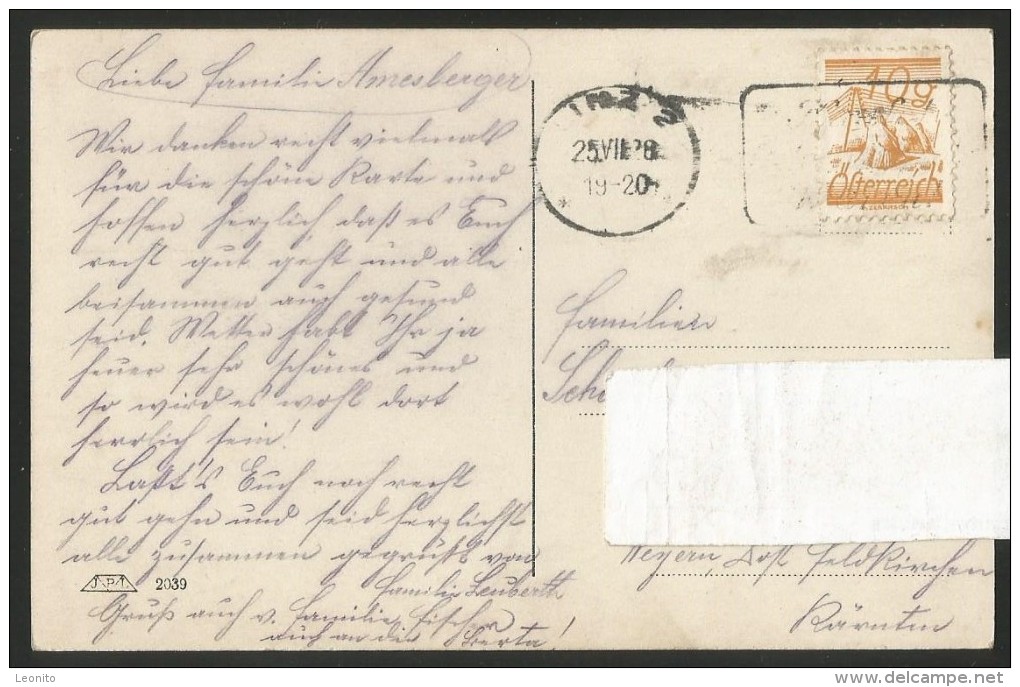 Liebe Familie Amesberger
Wir danken recht vielmals
für die schöne Karte und
hoffen herzlich daß es Euch
recht gut geht und alle
beisammen auch gesund
seid. Wetter habt Ihr ja
heuer sehr schönes und
so wird es wohl dort
herrlich sein!
Laßt's Euch noch recht
gut gehn und seid herzlichst
alle zusammen gegrüßt von
Familie Leuberth
Gruß auch v. Familie Fischer
auch an die Berta!
J.P.L. 2039
25.VII.28
19-20
10g
Österreich
Familien
Weyern, Post Feldkirchen
Kärnten
Leonito
delcampe.net